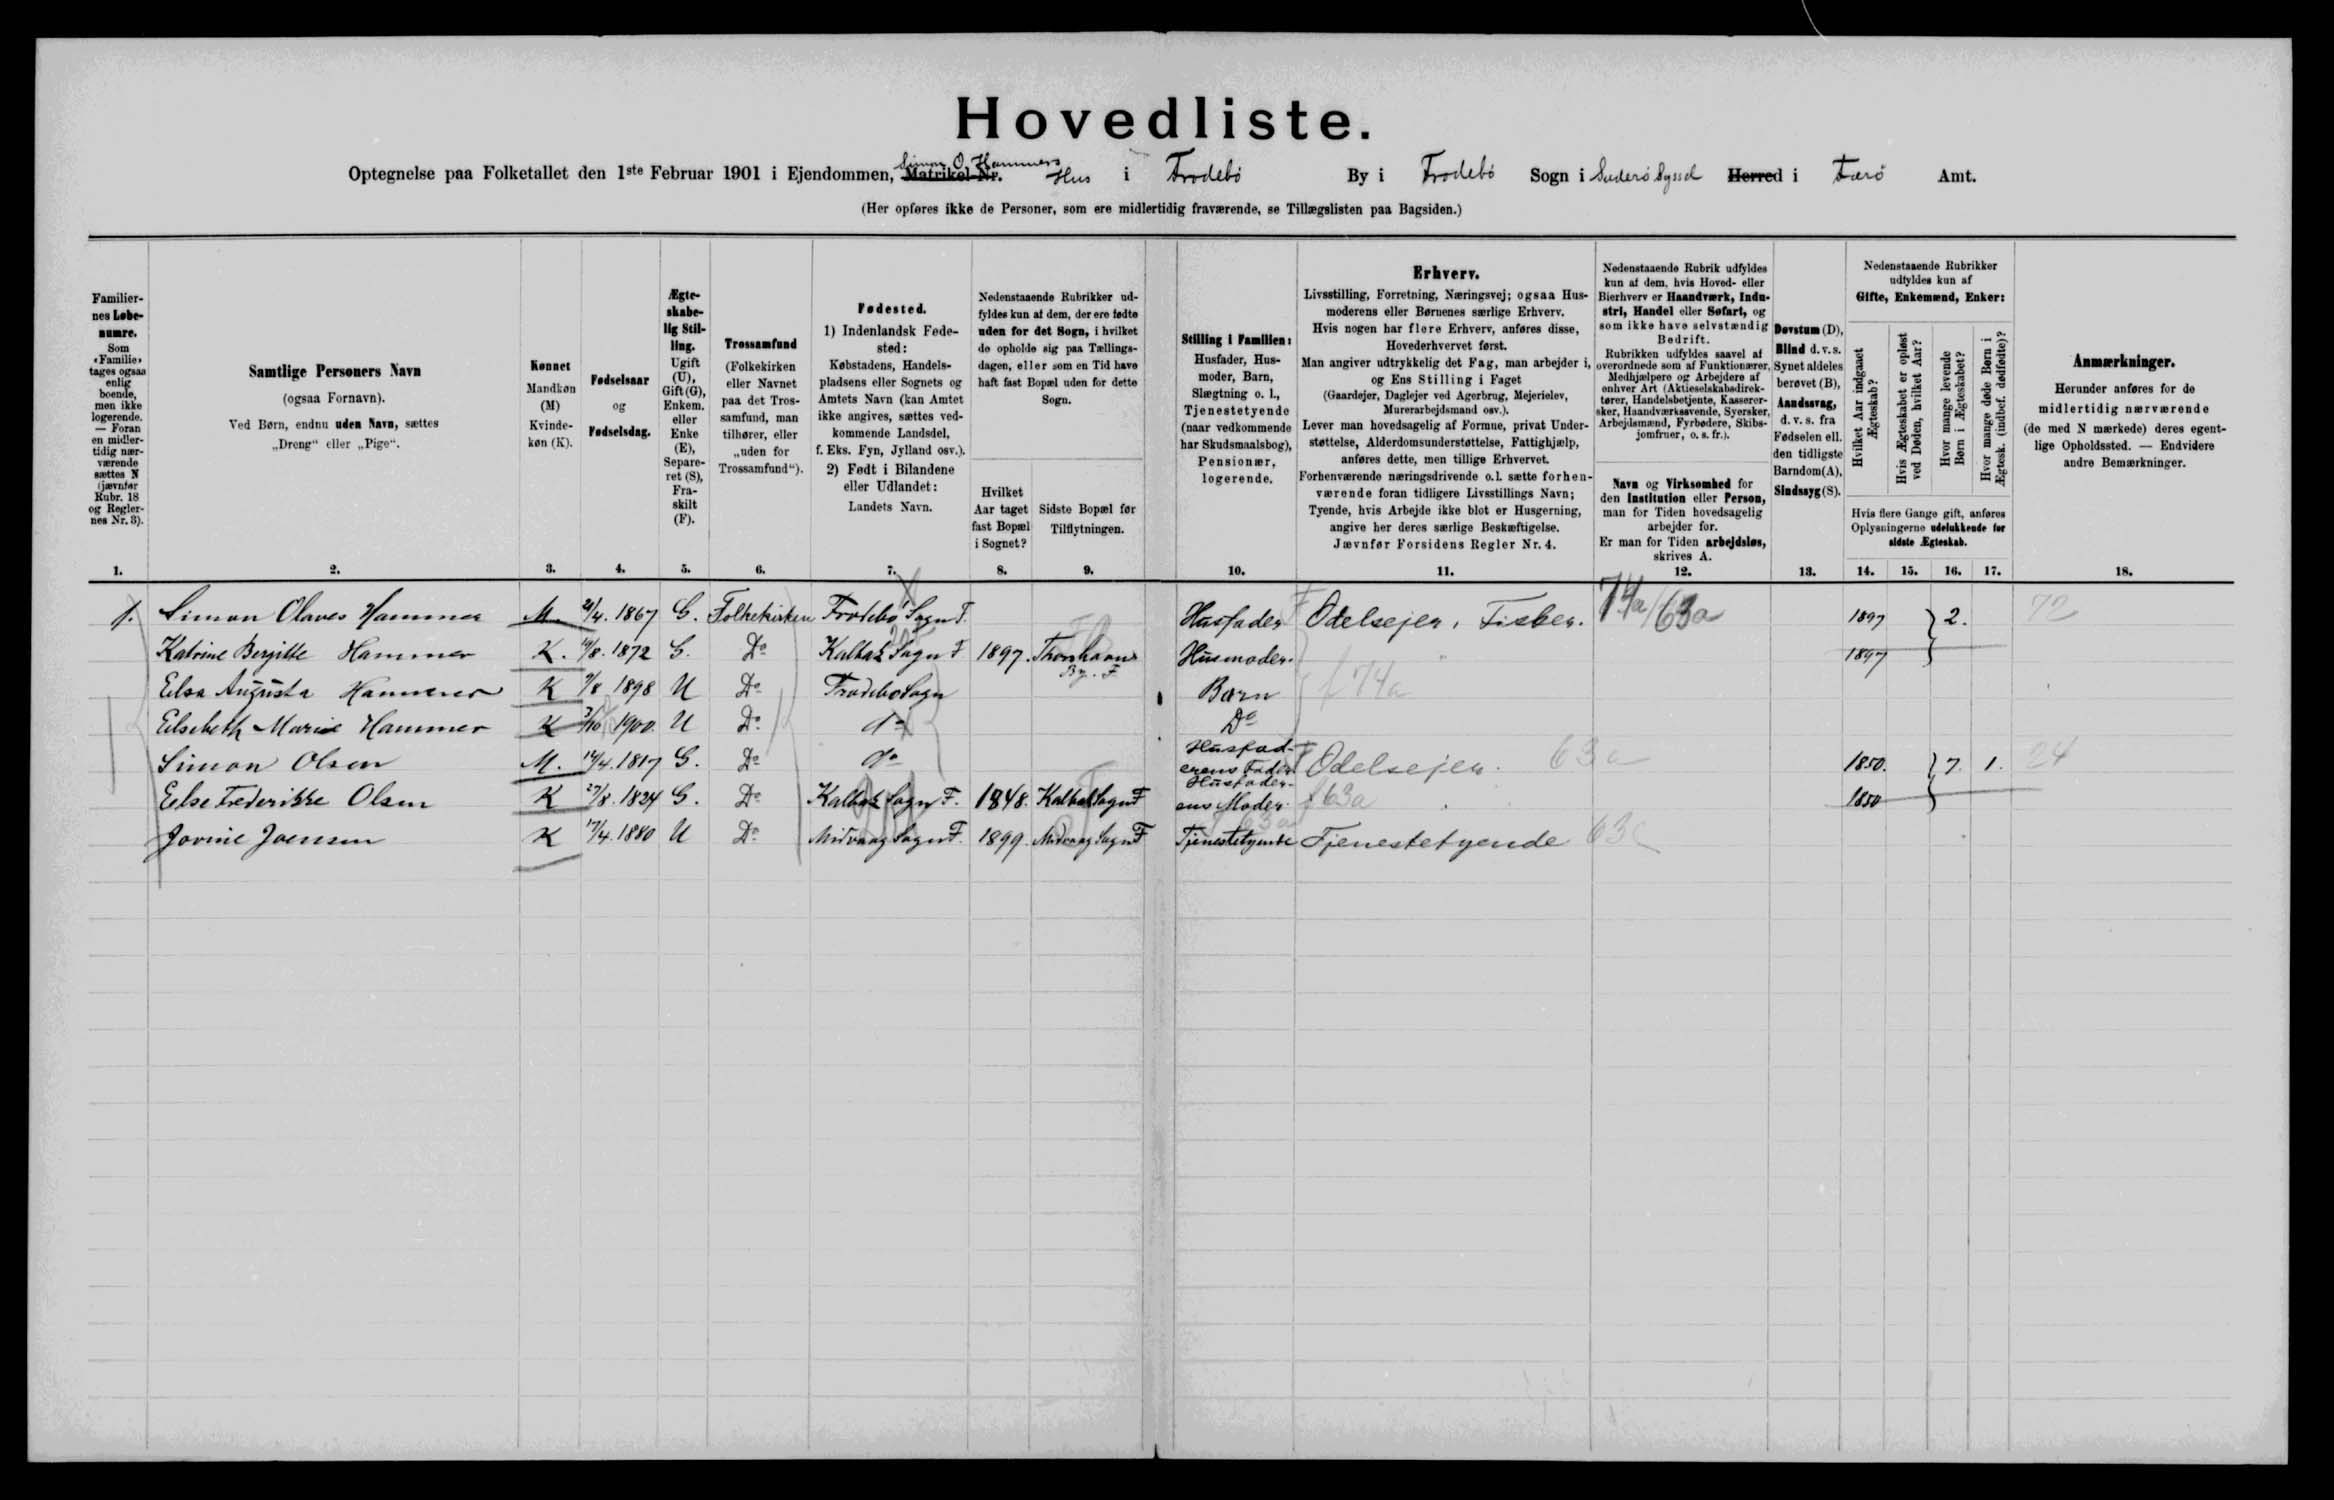 Hovedliste.
Optegnelse paa Folketallet den 1ste Februar 1901 i Ejendommen, Matrikel Nr. Simon O. Hammers Hus i Frodebö By i Frodebö Sogn i Suderö Syssel Herred i Færö Amt.
(Her opføres ikke de Personer, som ere midlertidig fraværende, se Tillægslisten paa Bagsiden.)
Familier-
nes Løbe-
numre.
Som
«Familie»
tages ogsaa
enlig
boende,
men ikke
logerende.
— Foran
en midler-
tidig nær-
værende
sættes N
(jævnfør
Rubr. 18
og Regler-
nes Nr. 3).
Samtlige Personers Navn
(ogsaa Fornavn).
Ved Børn, endnu uden Navn, sættes
„Dreng“ eller „Pige“.
Kønnet
Mandkøn
(M)
Kvinde-
køn (K).
Fødselsaar
og
Fødselsdag.
Ægte-
skabe-
lig Stil-
ling.
Ugift
(U),
Gift (G),
Enkem.
eller
Enke
(E),
Separe-
ret (S),
Fra-
skilt
(F).
Trossamfund
(Folkekirken
eller Navnet
paa det Tros-
samfund, man
tilhører, eller
„uden for
Trossamfund“).
Fødested.
1) Indenlandsk Føde-
sted:
Købstadens, Handels-
pladsens eller Sognets og
Amtets Navn (kan Amtet
ikke angives, sættes ved-
kommende Landsdel,
f. Eks. Fyn, Jylland osv.).
2) Født i Bilandene
eller Udlandet:
Landets Navn.
Nedenstaaende Rubrikker ud-
fyldes kun af dem, der ere fødte
uden for det Sogn, i hvilket
de opholde sig paa Tællings-
dagen, eller som en Tid have
haft fast Bopæl uden for dette
Sogn.
Hvilket
Aar taget
fast Bopæl
i Sognet?
Sidste Bopæl før
Tilflytningen.
Stilling i Familien:
Husfader, Hus-
moder, Barn,
Slægtning o. l.,
Tjenestetyende
(naar vedkommende
har Skudsmaalsbog),
Pensionær,
logerende.
Erhverv.
Livsstilling, Forretning, Næringsvej; ogsaa Hus-
moderens eller Børnenes særlige Erhverv.
Hvis nogen har flere Erhverv, anføres disse,
Hovederhvervet først.
Man angiver udtrykkelig det Fag, man arbejder i,
og Ens Stilling i Faget
(Gaardejer, Daglejer ved Agerbrug, Mejerielev,
Murerarbejdsmand osv.).
Lever man hovedsagelig af Formue, privat Under-
støttelse, Alderdomsunderstøttelse, Fattighjælp,
anføres dette, men tillige Erhvervet.
Forhenværende næringsdrivende o.l. sætte forhen-
værende foran tidligere Livsstillings Navn;
Tyende, hvis Arbejde ikke blot er Husgerning,
angive her deres særlige Beskæftigelse.
Jævnfør Forsidens Regler Nr. 4.
Nedenstaaende Rubrik udfyldes
kun af dem, hvis Hoved- eller
Bierhverv er Haandværk, Indu-
stri, Handel eller Søfart, og
som ikke have selvstændig
Bedrift.
Rubrikken udfyldes saavel af
overordnede som af Funktionærer,
Medhjælpere og Arbejdere af
enhver Art (Aktieselskabsdirek-
tører, Handelsbetjente, Kasserer-
sker, Haandværkssvende, Syersker,
Arbejdsmænd, Fyrbødere, Skibs-
jomfruer, o. s. fr.).
Navn og Virksomhed for
den Institution eller Person,
man for Tiden hovedsagelig
arbejder for.
Er man for Tiden arbejdsløs,
skrives A.
Døvstum (D),
Blind d.v.s.
Synet aldeles
berøvet (B),
Aandssvag,
d. v. s. fra
Fødselen ell.
den tidligste
Barndom (A),
Sindssyg (S).
Nedenstaaende Rubrikker
udfyldes kun af
Gifte, Enkemænd, Enker:
Hvilket Aar indgaaet
Ægteskab?
Hvis Ægteskabet er opløst
ved Døden, hvilket Aar?
Hvor mange levende
Børn i Ægteskabet?
Hvor mange døde Børn i
Ægtesk. (indbef. dødfødte)?
Hvis flere Gange gift, anføres
Oplysningerne udelukkende for
sidste Ægteskab.
Anmærkninger.
Herunder anføres for de
midlertidig nærværende
(de med N mærkede) deres egent-
lige Opholdssted. — Endvidere
andre Bemærkninger.
1. 2. 3. 4. 5. 6. 7. 8. 9. 10. 11. 12. 13. 14. 15. 16. 17. 18.
1. Simon Olaves Hammer M. /4. 1867 G. Folkekirken Frodebö Sogn F. Husfader Odelsejer, Fisker. 74a/63a 1897 } 2. 72
Katrine Bergitte Hammer K. 19/8. 1872 G. Do Kalbak Sogn F 1897. Thorshavns By. F Husmoder. 1897
Elsa Augusta Hammer K 9/8 1898 U Do Frodebö Sogn Barn f 74a
Elsebeth Marie Hammer K 3/10 1900 U Do. do Do
Simon Olsen M. 14/4. 1817 G. Do do Husfad-
erens Fader Odelsejer. 63a 1850. } 7. 1. 24
Else Frederikke Olsen K 27/8. 1824 G. Do Kalbak Sogn F. 1848. Kalbak Sogn F Husfader-
ens Moder. f 63a 1850
Jovine Joensen K 17/4. 1880 U Do. Midvaag Sogn F. 1899. Midvaag Sogn F Tjenestetyende Tjenestetyende 63c